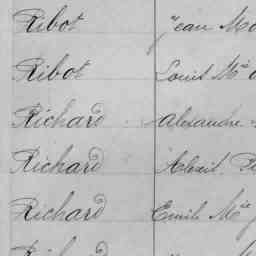 Ribot Jean M
Ribot Louis Mie
Richard Alexandre
Richard Alexis
Richard Emile Mie
Richard